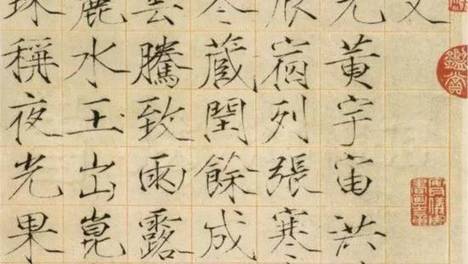 文
元黄宇宙洪
辰宿列張寒
冬藏閏餘成
雲騰致雨露
麗水玉出崑
珠稱夜光果
鑑賞